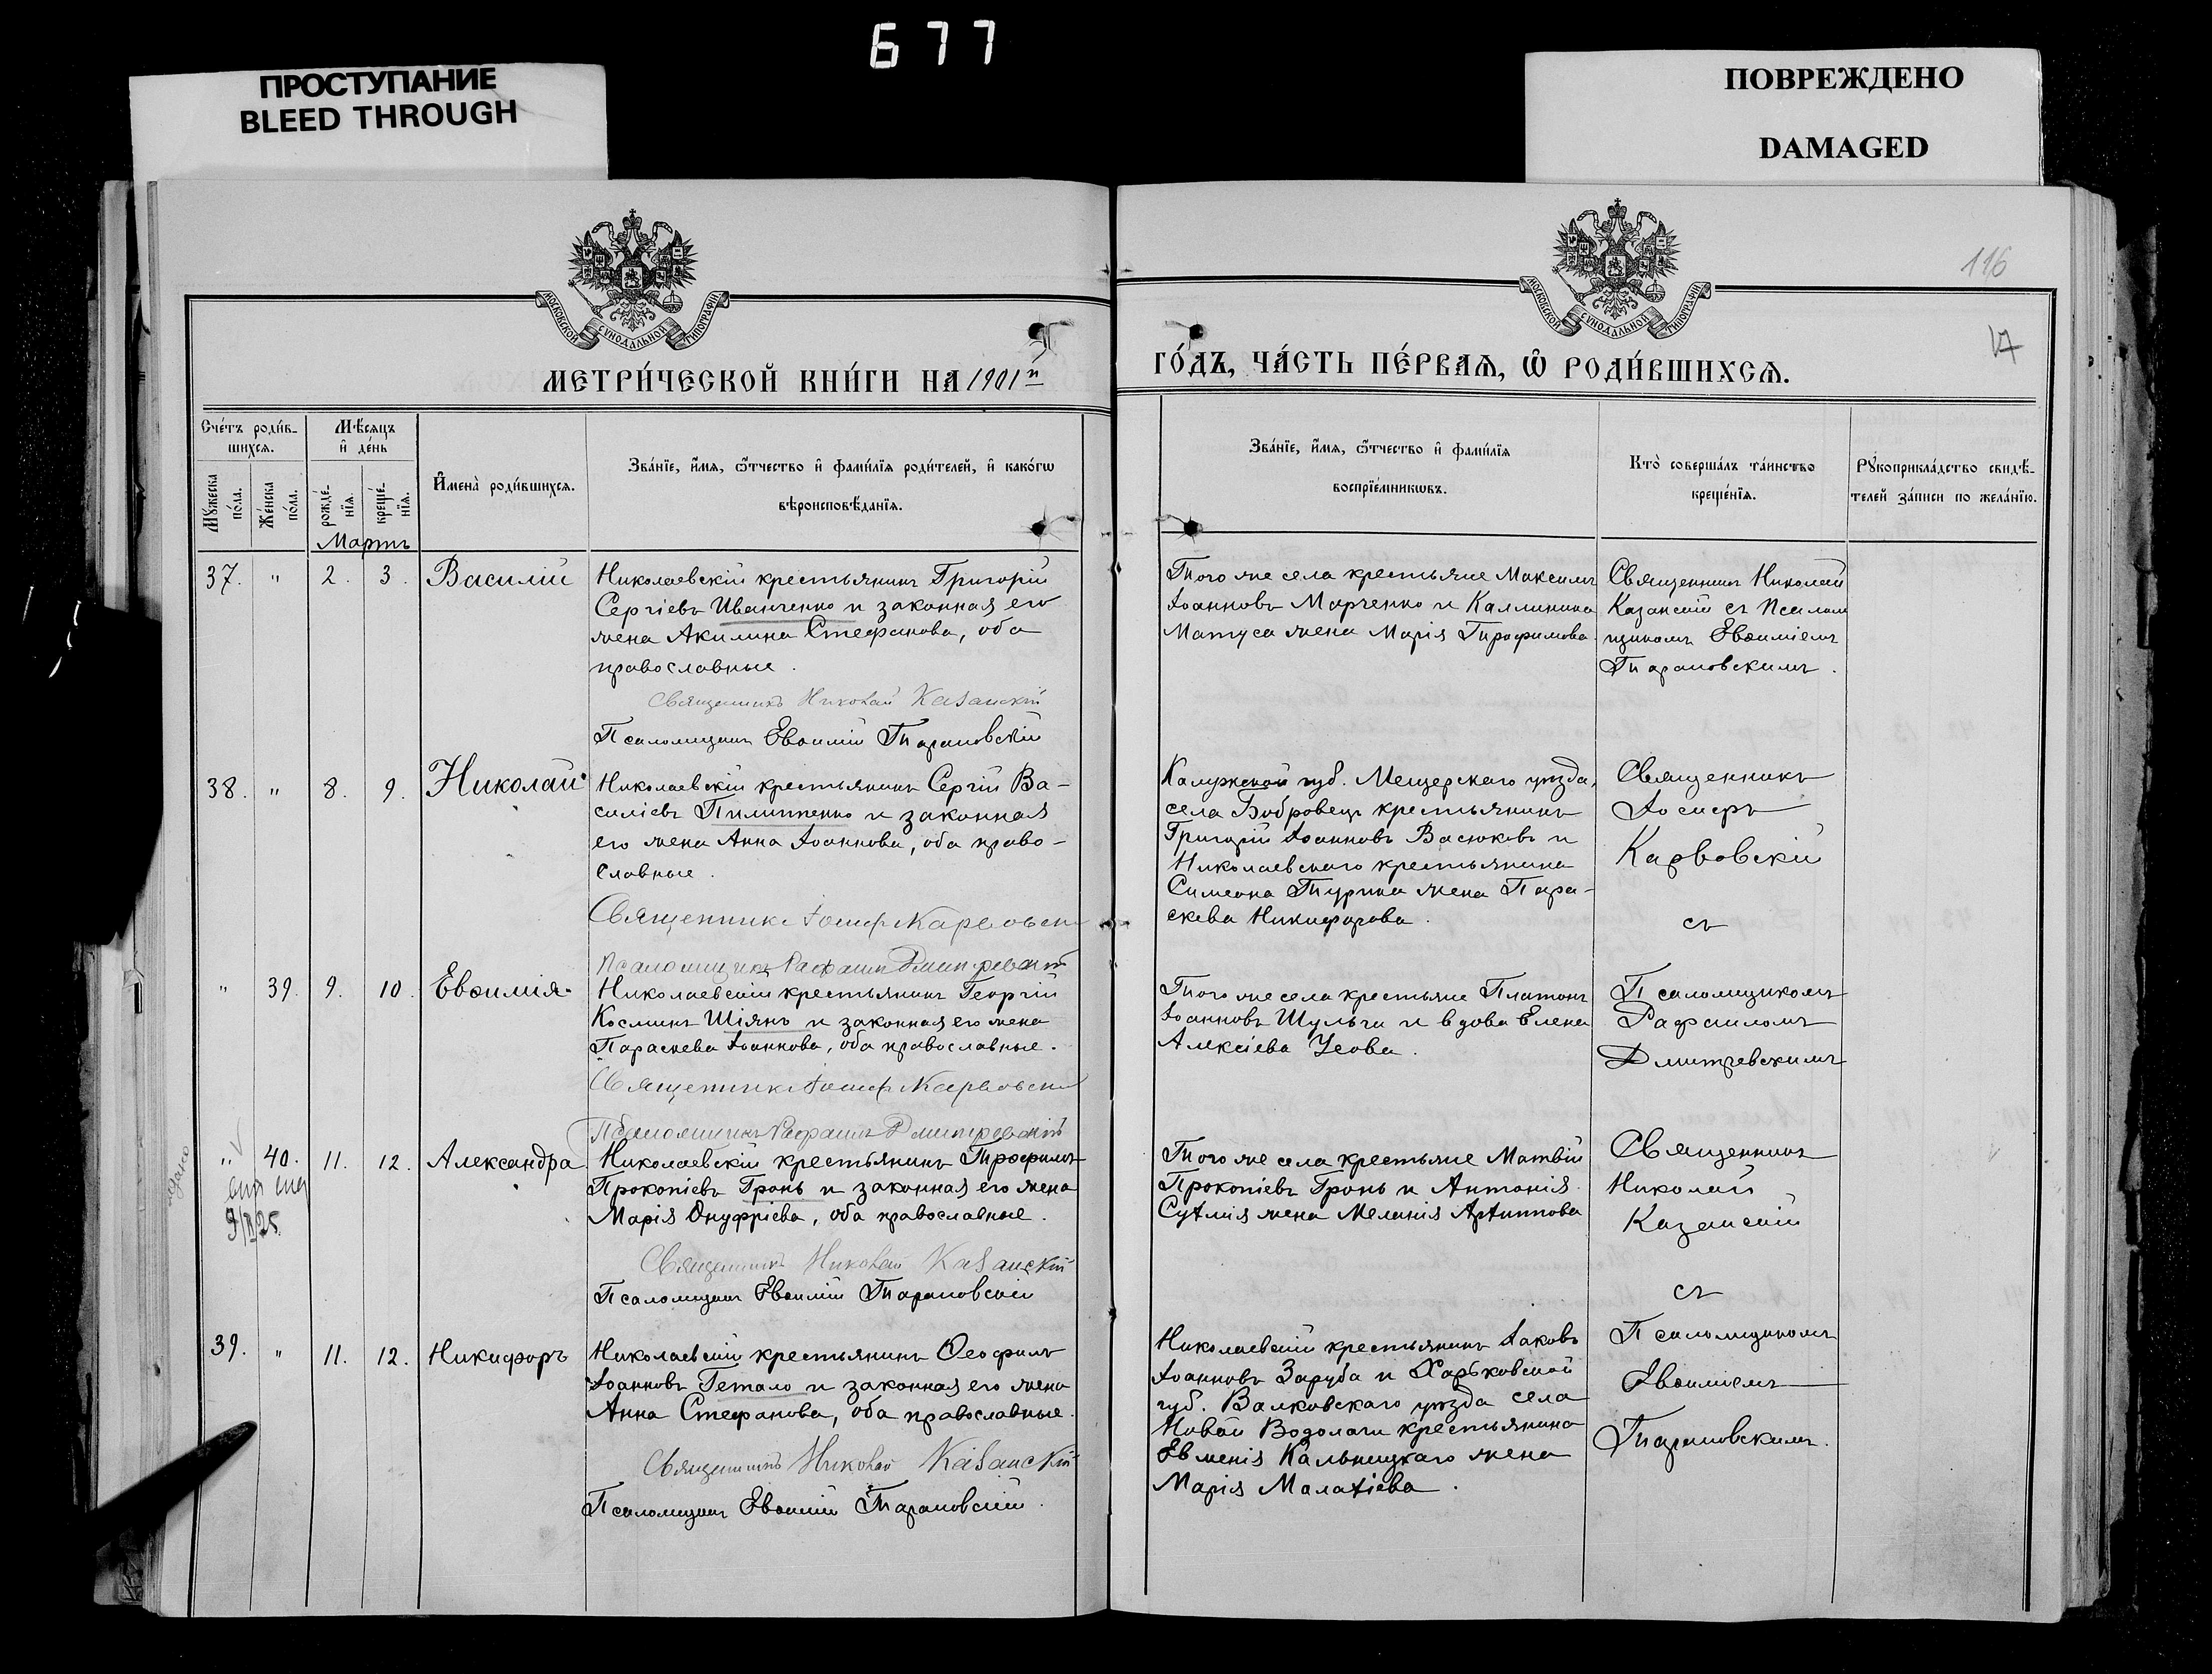 677
ПРОСТУПАНИЕ
BLEED THROUGH
ПОВРЕЖДЕНО
DAMAGED
116
17
МОСКОВСКОЙ СѴНОДАЛЬНОЙ ТИПОГРАФІИ
МОСКОВСКОЙ СѴНОДАЛЬНОЙ ТИПОГРАФІИ
МЕТРИ́ЧЕСКОЙ КНИ́ГИ НА 1901й
ГО́ДЪ, ЧА́СТЬ ПЕ́РВАѦ, Ѡ҆ РОДИ́ВШИХСѦ.
Сче́тъ роди́в-
шихсѧ.
Мѣ́сѧцъ
и҆ де́нь
Мꙋ́жеска по́ла.
Же́нска по́ла.
рожде́-
нїѧ.
креще́-
нїѧ.
И҆мена̀ роди́вшихсѧ.
Зва́нїе, и҆́мѧ, ѻ҆́тчество и҆ фами́лїѧ роди́телей, и҆ како́гѡ
вѣроисповѣ́данїѧ.
Зва́нїе, и҆́мѧ, ѻ҆́тчество и҆ фами́лїѧ
воспрїе́мникѡвъ.
Кто̀ соверша́лъ та́инство
креще́нїѧ.
Рꙋкоприкла́дство свидѣ́-
телей за́писи по жела́нїю.
Мартъ
37. " 2. 3. Василій
Николаевскій крестьянинъ Григорій
Сергіевъ Иванченко и законная его
жена Акилина Стефанова, оба
православные.
Священникъ Николай Казанскій
Псаломщикъ Евѳимій Тарановскій
Того же села крестьяне Максимъ
Іоанновъ Марченко и Каллиника
Матуса жена Марія Трофимова.
Священникъ Николай
Казанскій съ Псалом
щикомъ Евѳиміемъ
Тарановскимъ.
38. " 8. 9. Николай
Николаевскій крестьянинъ Сергій Ва-
силіевъ Пилипенко и законная
его жена Анна Іоаннова, оба право-
славные.
Священникъ Іосифъ Карвовскій
Псаломщикъ Рафаилъ Дмитревскій
Калужской губ. Мещерскаго уѣзда,
села Бобровецъ крестьянинъ
Григорій Іоанновъ Васюковъ и
Николаевскаго крестьянина
Симеона Турика жена Пара-
скева Никифорова.
Священникъ
Іосифъ
Карвовскій
съ
" 39. 9. 10. Евѳимія.
Николаевскій крестьянинъ Георгій
Косминъ Шіянъ и законная его жена
Параскева Іоаннова, оба православные.
Священникъ Іосифъ Карвовскій
Псаломщикъ Рафаилъ Дмитревскій
Того же села крестьяне Платонъ
Іоанновъ Шульга и вдова Елена
Алексіева Усова.
Псаломщикомъ
Рафаиломъ
Дмитревскимъ
" 40. 11. 12. Александра
9/II 25.
Николаевскій крестьянинъ Трофимъ
Прокопіевъ Гронь и законная его жена
Марія Онуфріева, оба православные.
Священникъ Николай Казанскій
Псаломщикъ Евѳимій Тарановскій
Того же села крестьяне Матвій
Прокопіевъ Гронь и Антонія
жена Меланія
Священникъ
Николай
Казанскій
съ
39. " 11. 12. Никифоръ
Николаевскій крестьянинъ Ѳеофилъ
Іоанновъ Гетало и законная его жена
Анна Стефанова, оба православные.
Священникъ Николай Казанскій
Псаломщикъ Евѳимій Тарановскій.
Николаевскій крестьянинъ Іаковъ
Іоанновъ Заруба и Харьковской
губ. Валковскаго уѣзда села
Новой Водолаги крестьянина
Евменія Кальницкаго жена
Марія Малахіева.
Псаломщикомъ
Евѳиміемъ
Тарановскимъ.